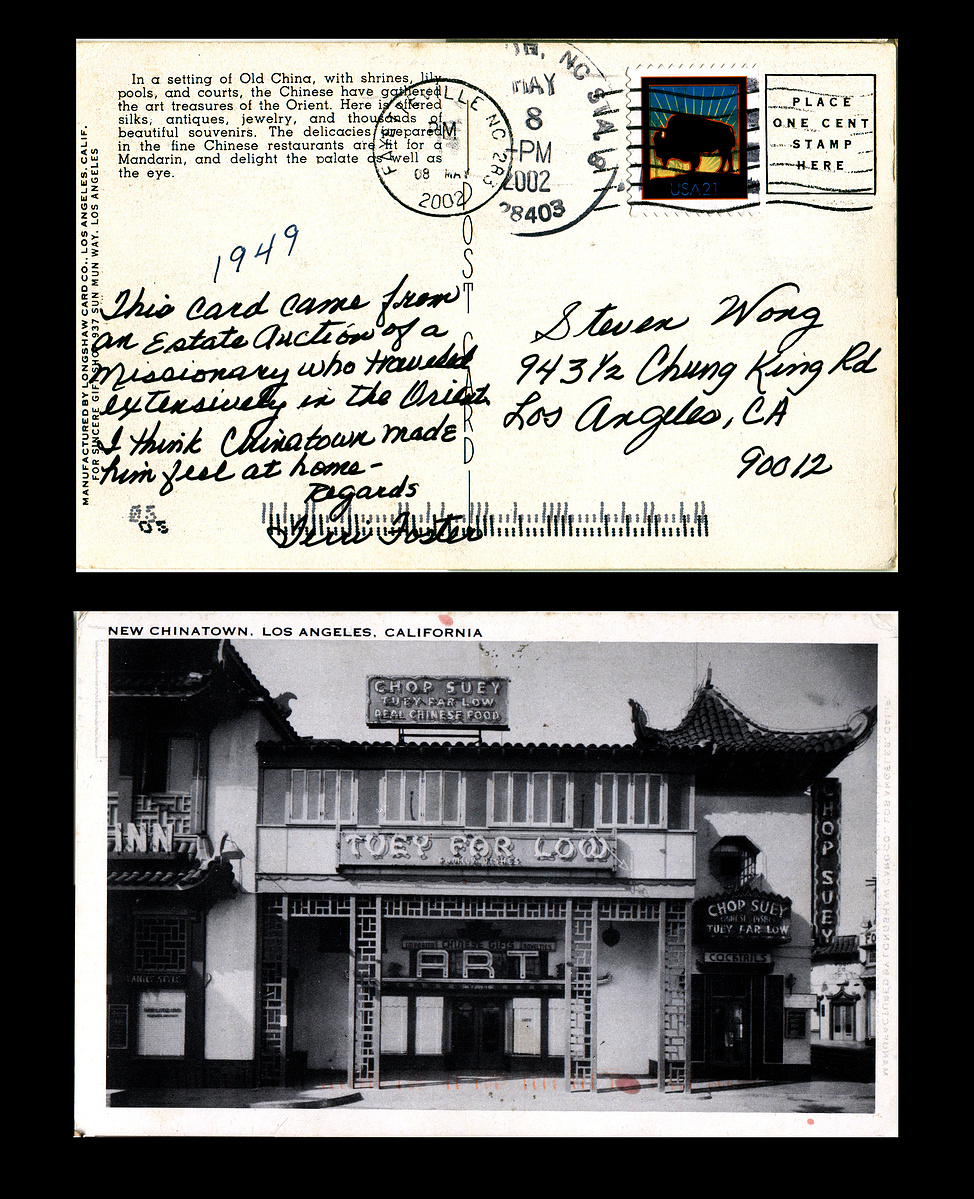 In a setting of Old China, with shrines, lily
pools, and courts, the Chinese have gathered
the art treasures of the Orient. Here is offered
silks, antiques, jewelry, and thousands of
beautiful souvenirs. The delicacies prepared
in the fine Chinese restaurants are fit for a
Mandarin, and delight the palate as well as
the eye.
MANUFACTURED BY LONGSHAW CARD CO., LOS ANGELES, CALIF.
FOR SINCERE GIFT SHOP, 937 SUN MUN WAY, LOS ANGELES
FAYETTEVILLE NC 283
PM
08 MAY
2002
NC
MAY
8
PM
2002
28403
USA 21
PLACE
ONE CENT
STAMP
HERE
POST CARD
1949
This card came from
an Estate Auction of a
Missionary who traveled
extensively in the Orient.
I think Chinatown made
him feel at home-
Regards
Terri Foster
Steven Wong
943 1/2 Chung King Rd
Los Angeles, CA
90012
NEW CHINATOWN, LOS ANGELES, CALIFORNIA
CHOP SUEY
TUEY FAR LOW
REAL CHINESE FOOD
INN
TUEY FAR LOW
FAMILY DISHES
CHOP SUEY
CHOP SUEY
CHINESE DISHES
TUEY FAR LOW
COCKTAILS
CHINESE GIFTS
ART
MANUFACTURED BY LONGSHAW CARD CO., LOS ANGELES, CALIF.